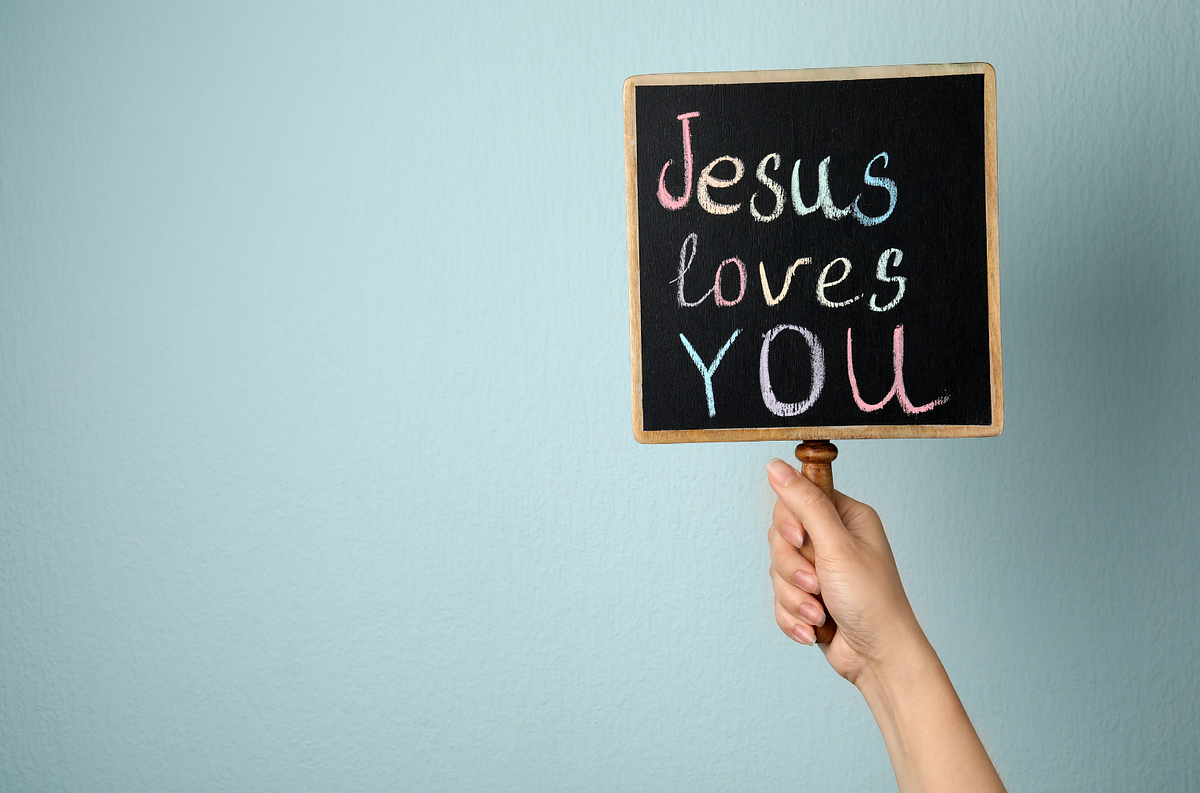 Jesus
loves
YOU